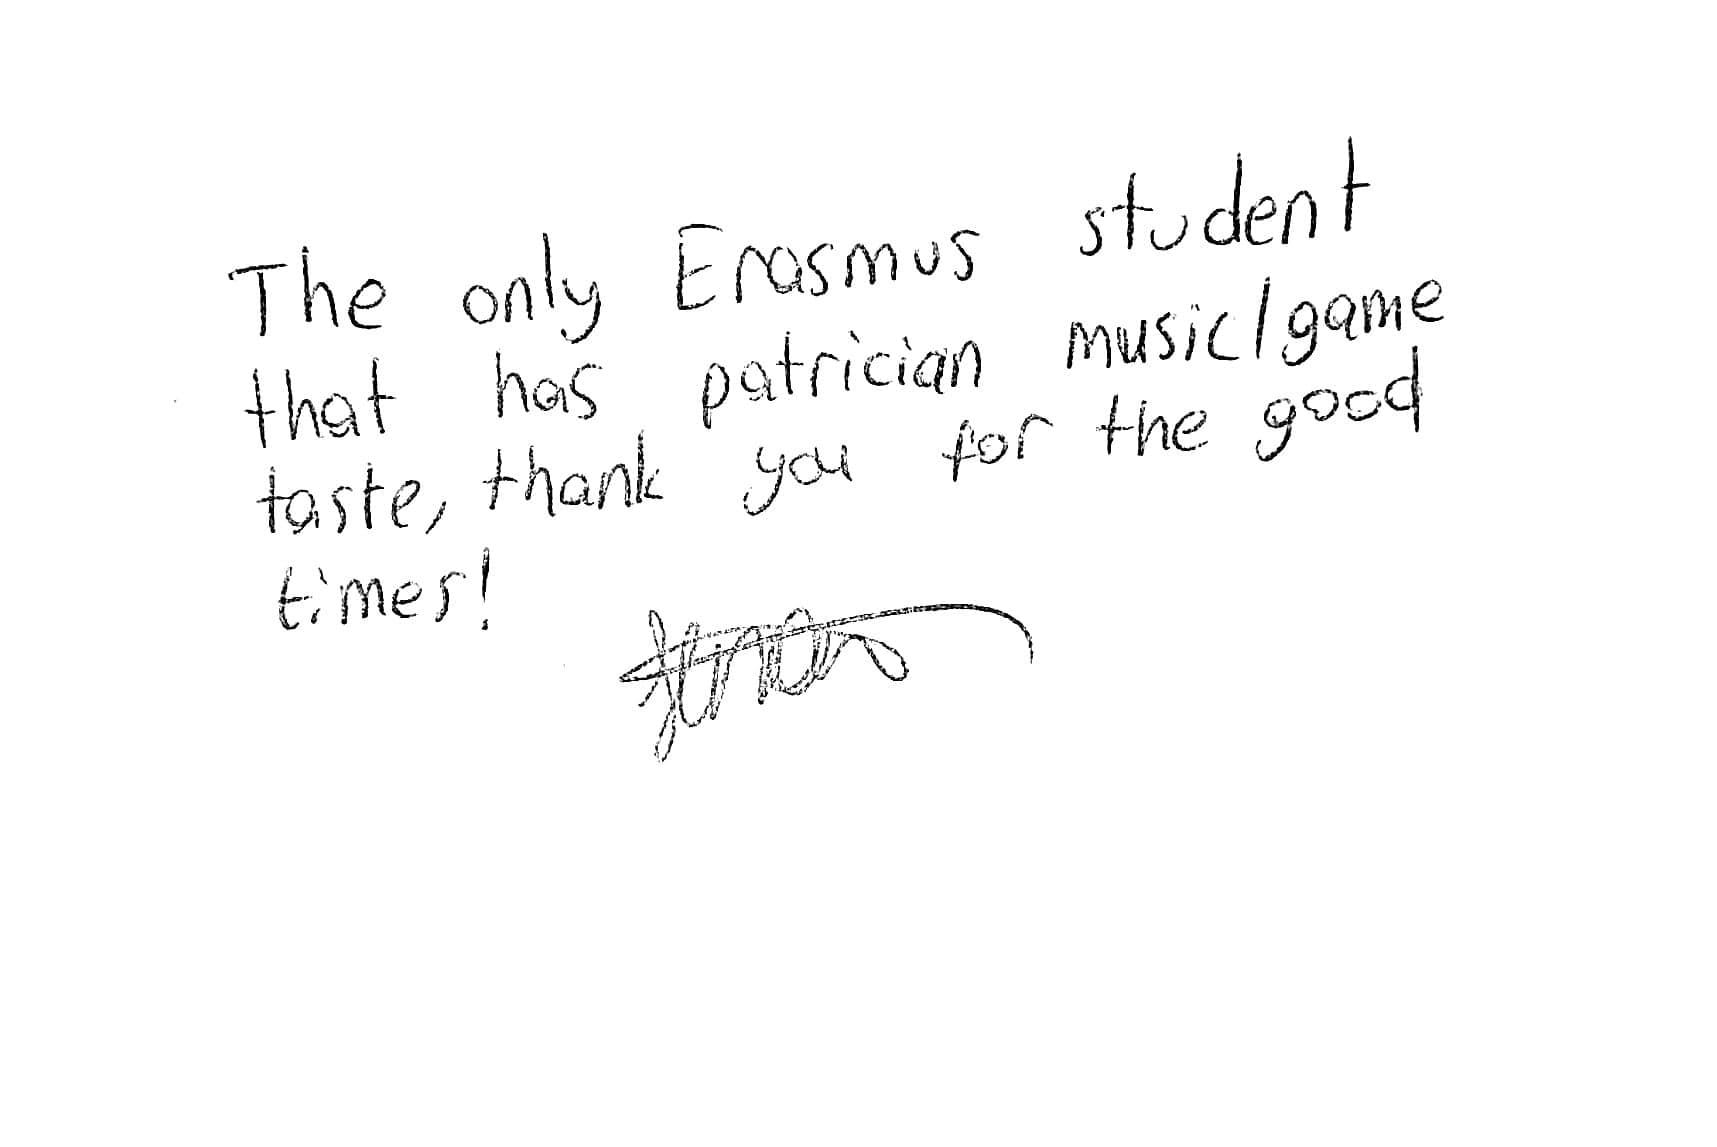 The only Erasmus student
that has patrician music/game
taste, thank you for the good
times!